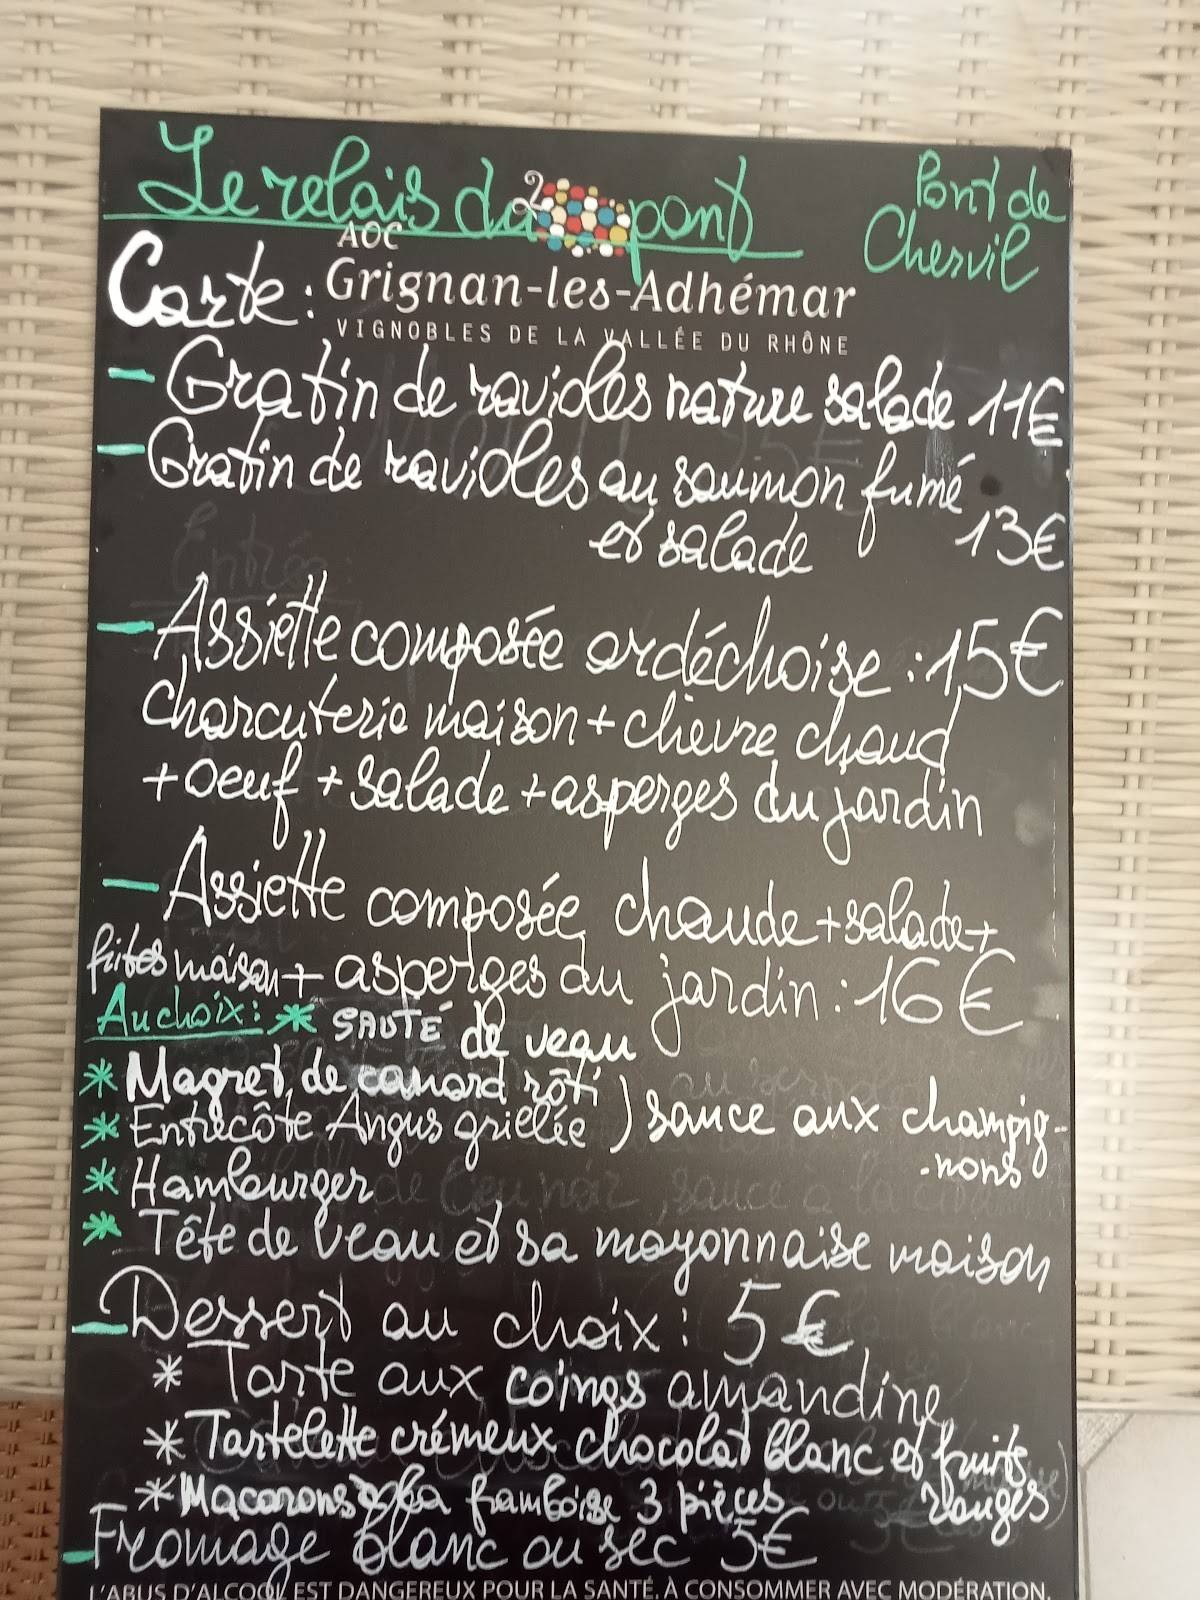 Le relais du pont
Pont de
Chervil
AOC
Carte :
Grignan-les-Adhémar
VIGNOBLES DE LA VALLÉE DU RHÔNE
- Gratin de ravioles nature salade 11€
- Gratin de ravioles au saumon fumé
et salade 13€
- Assiette composée ardéchoise : 15€
charcuterie maison + chèvre chaud
+ oeuf + salade + asperges du jardin
- Assiette composée chaude + salade +
frites maison + asperges du jardin : 16€
Au choix : * SAUTÉ de veau
* Magret de canard rôti
* Entrecôte Angus grillée ) sauce aux champig-
-nons
* Hamburger
* Tête de veau et sa mayonnaise maison
- Dessert au choix : 5€
* Tarte aux coings amandine
* Tartelette crémeux chocolat blanc et fruits
rouges
* Macarons à la framboise 3 pièces
- Fromage blanc ou sec 5€
L'ABUS D'ALCOOL EST DANGEREUX POUR LA SANTÉ. À CONSOMMER AVEC MODÉRATION.